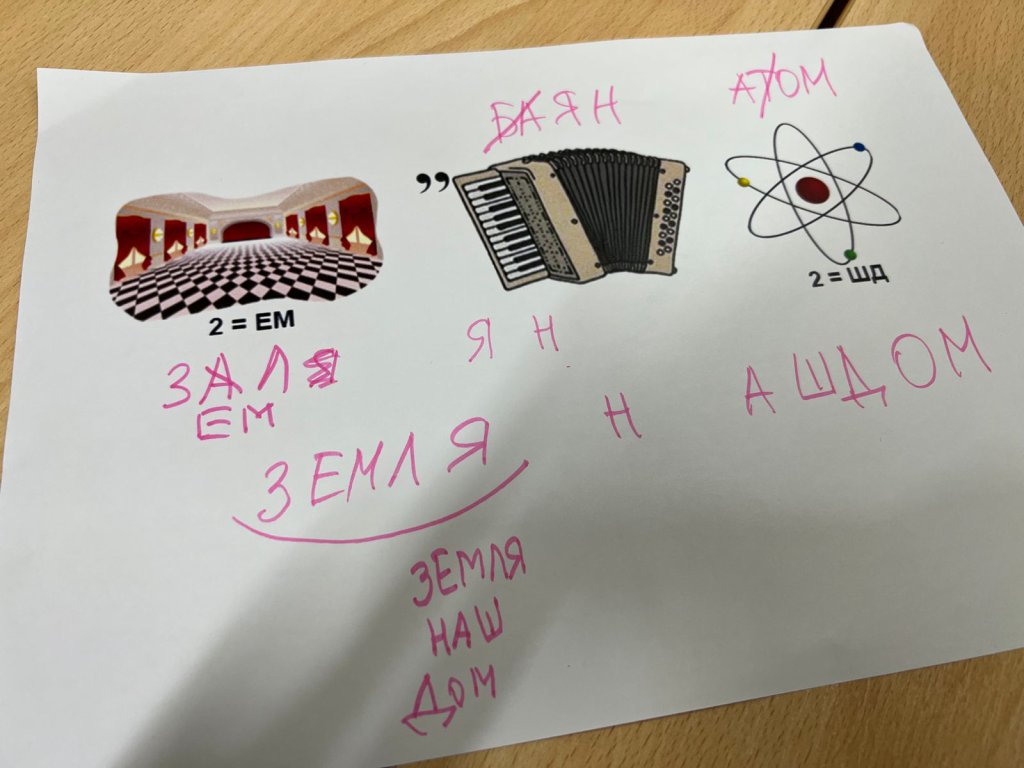 БАЯН
АТОМ
,,
2 = ЕМ
2 = ШД
ЗАЛ
ЕМ
Я Н
Н
АШДОМ
ЗЕМЛЯ
ЗЕМЛЯ
НАШ
ДОМ